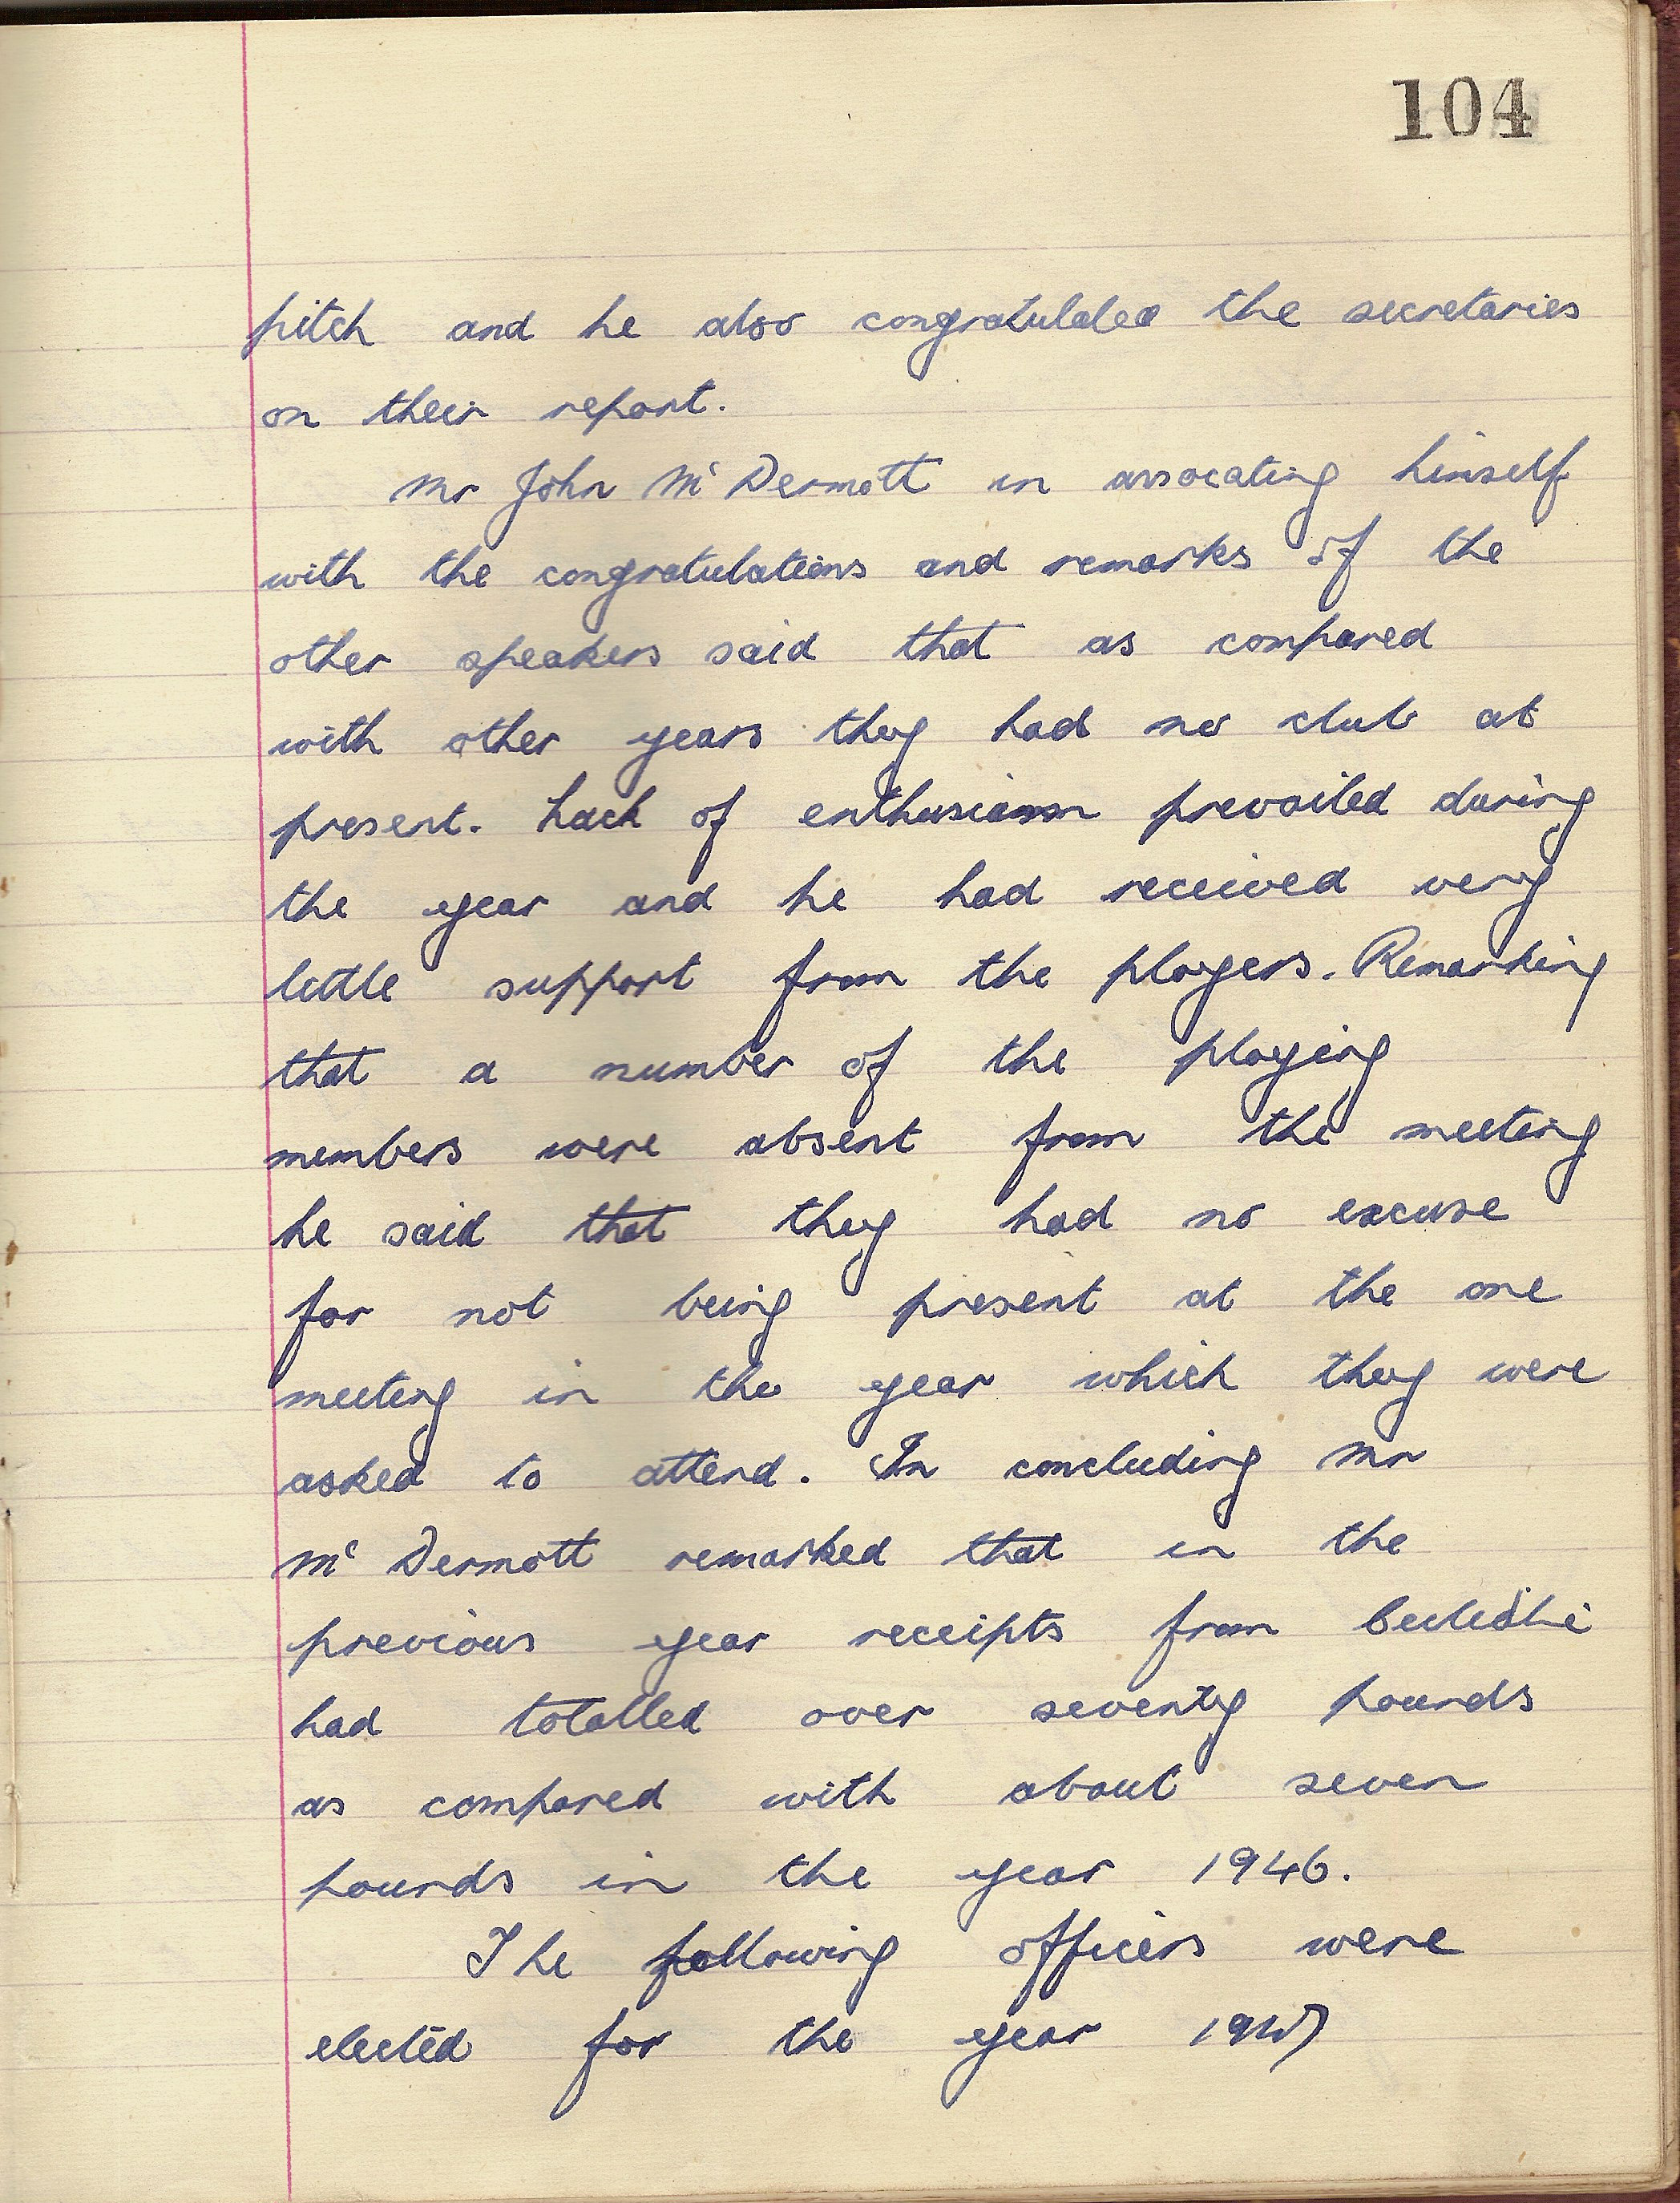 104
pitch and he also congratulated the secretaries
on their report.
Mr John Mc Dermott in assocating himself
with the congratulations and remarks of the
other speakers said that as compared
with other years they had no club at
present. Lack of enthusiasm prevailed during
the year and he had received very
little support from the players. Remarking
that a number of the playing
members were absent from the meeting
he said that they had no excuse
for not being present at the one
meeting in the year which they were
asked to attend. In concluding Mr
Mc Dermott remarked that in the
previous year receipts from
had totalled over seventy pounds
as compared with about seven
pounds in the year 1946.
The following officers were
elected for the year 1947